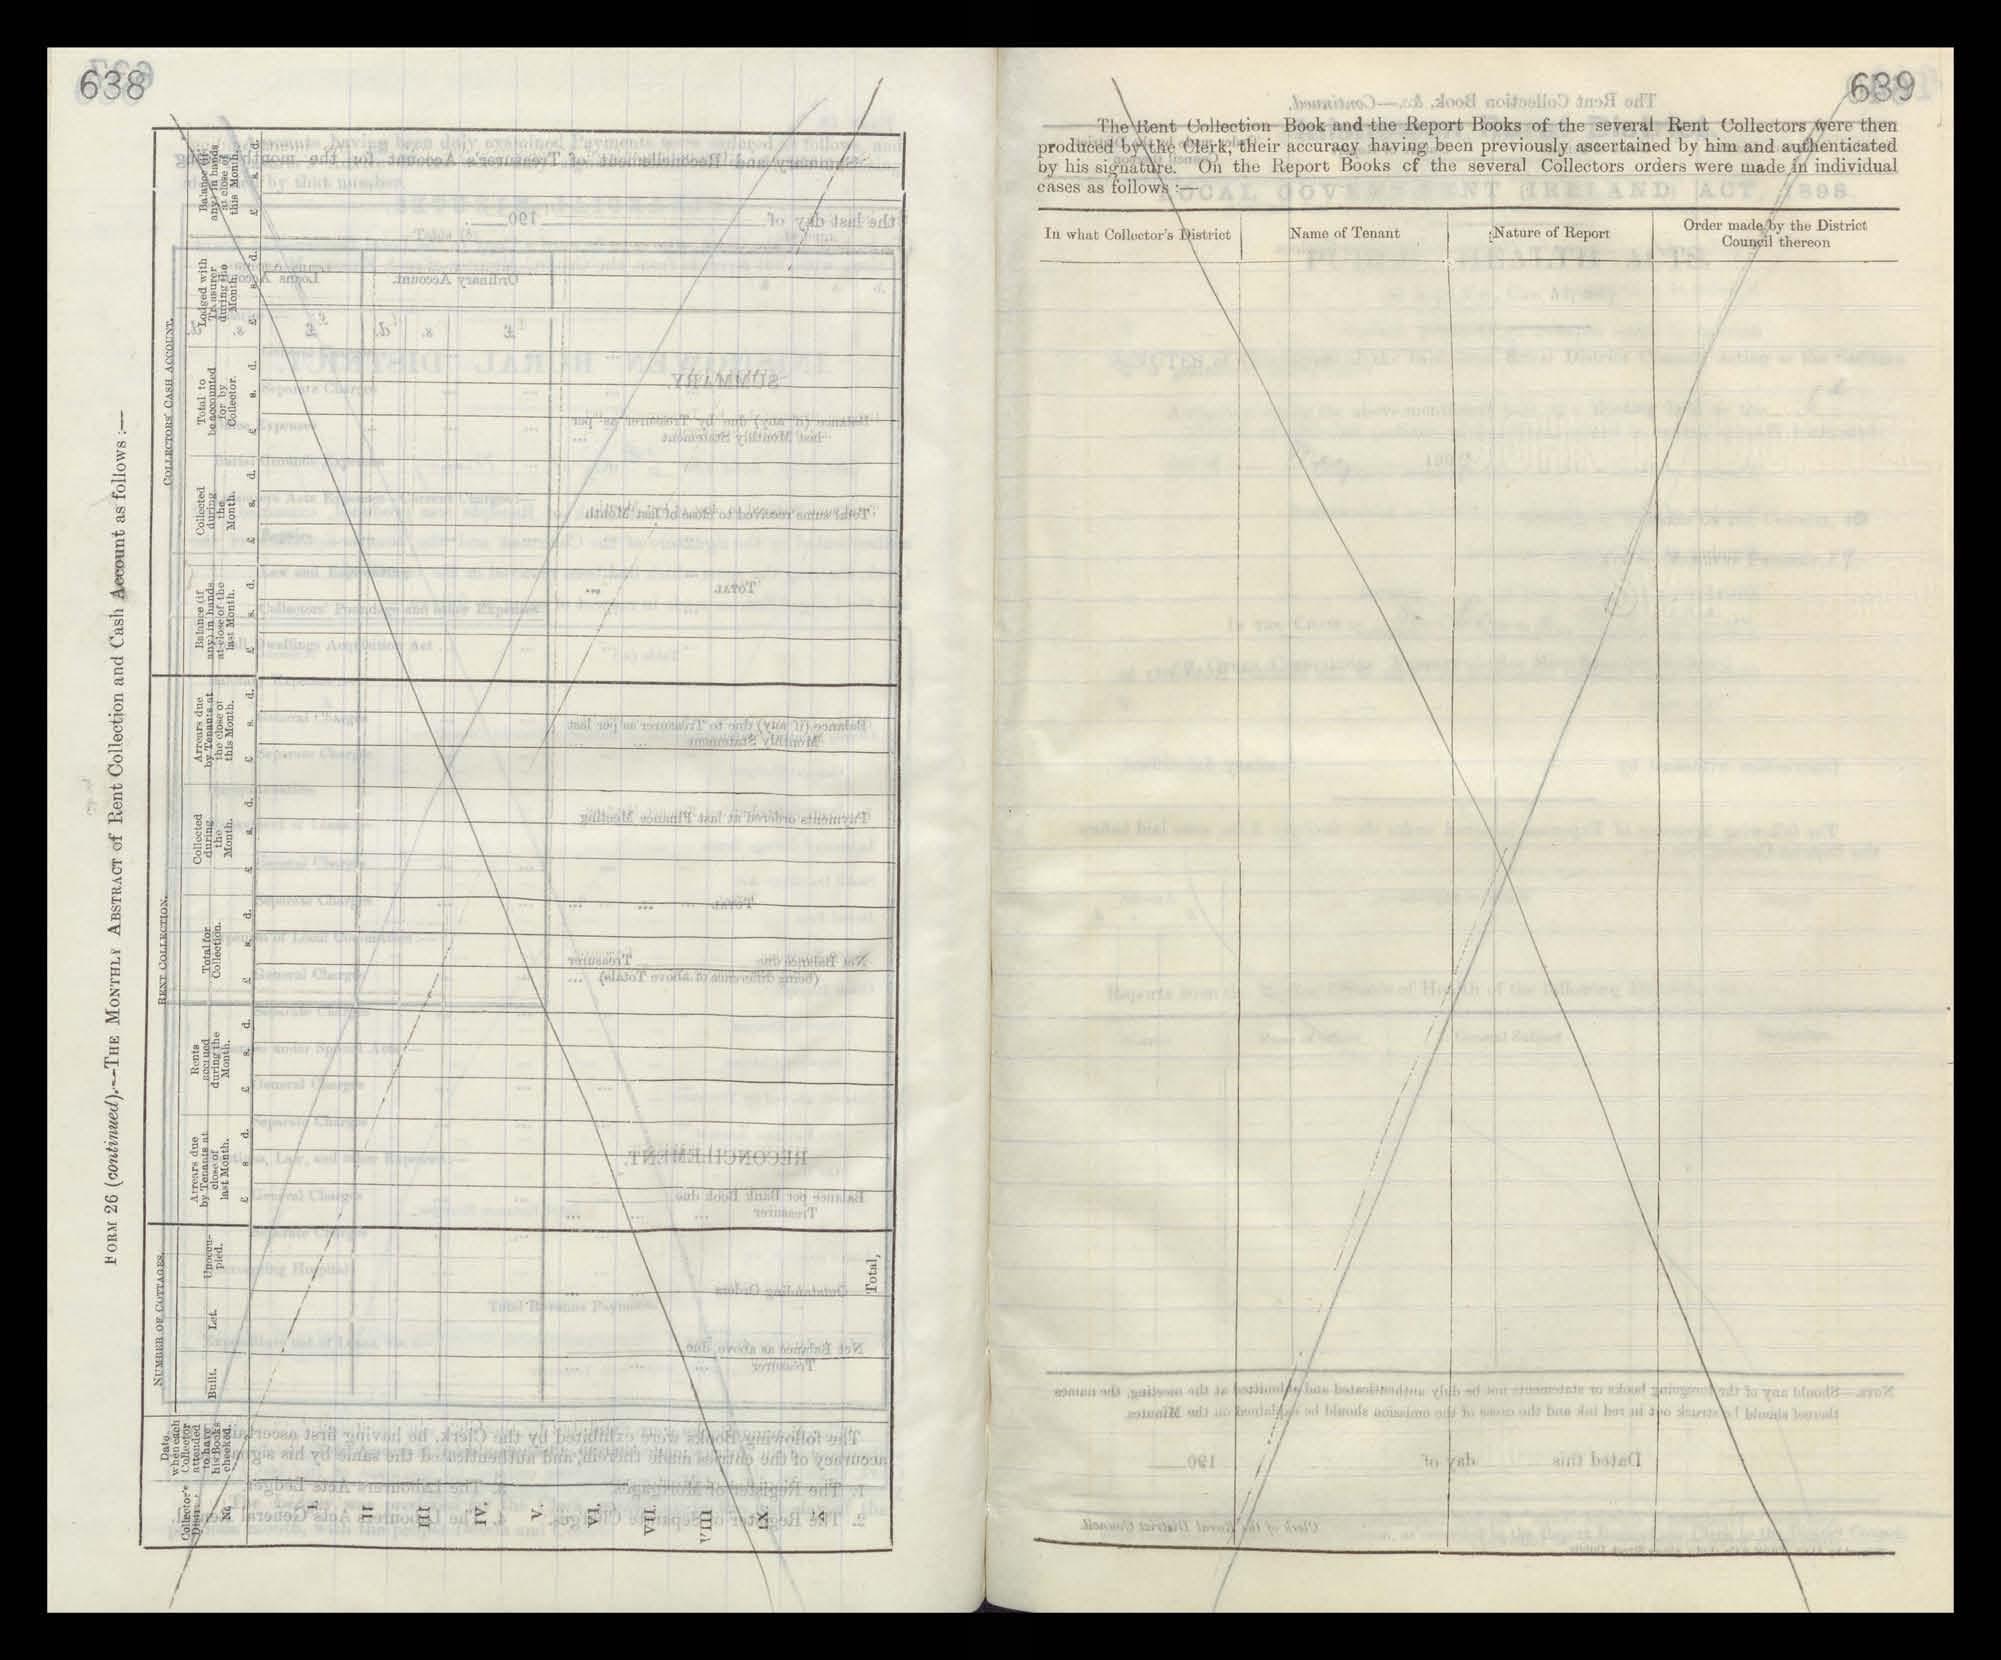 638
FORM 26 (continued).—THE MONTHLY ABSTRACT of Rent Collection and Cash Account as follows :—
COLLECTORS' CASH ACCOUNT.
RENT COLLECTION.
NUMBER OF COTTAGES.
Collector's
No.
Date
when each
Collector
attended
to have
his Books
checked.
Built.
Let.
Unoccu-
pied.
Arrears due
by Tenants at
close of
last Month.
£ s. d.
Rents
accrued
during the
Month.
£ s. d.
Total for
Collection.
£ s. d.
Collected
during
the
Month.
£ s. d.
Arrears due
by Tenants at
the close of
this Month.
£ s. d.
Balance (if
any) in hands
at close of the
last Month.
£ s. d.
Collected
during
the
Month.
£ s. d.
Total to
be accounted
for by
Collector.
£ s. d.
Lodged with
Treasurer
during the
Month.
£ s. d.
Balance (if
any) in hands
at close of
this Month.
£ s. d.
I.
II
III
IV.
V.
VI.
VII.
VIII
IX
X
Total,
639
The Rent Collection Book and the Report Books of the several Rent Collectors were then
produced by the Clerk, their accuracy having been previously ascertained by him and authenticated
by his signature. On the Report Books of the several Collectors orders were made in individual
cases as follows :—
In what Collector's District
Name of Tenant
Nature of Report
Order made by the District
Council thereon